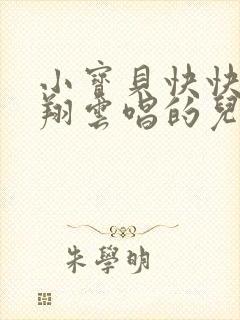 小寶貝快快
翔雲唱的兒
朱學明